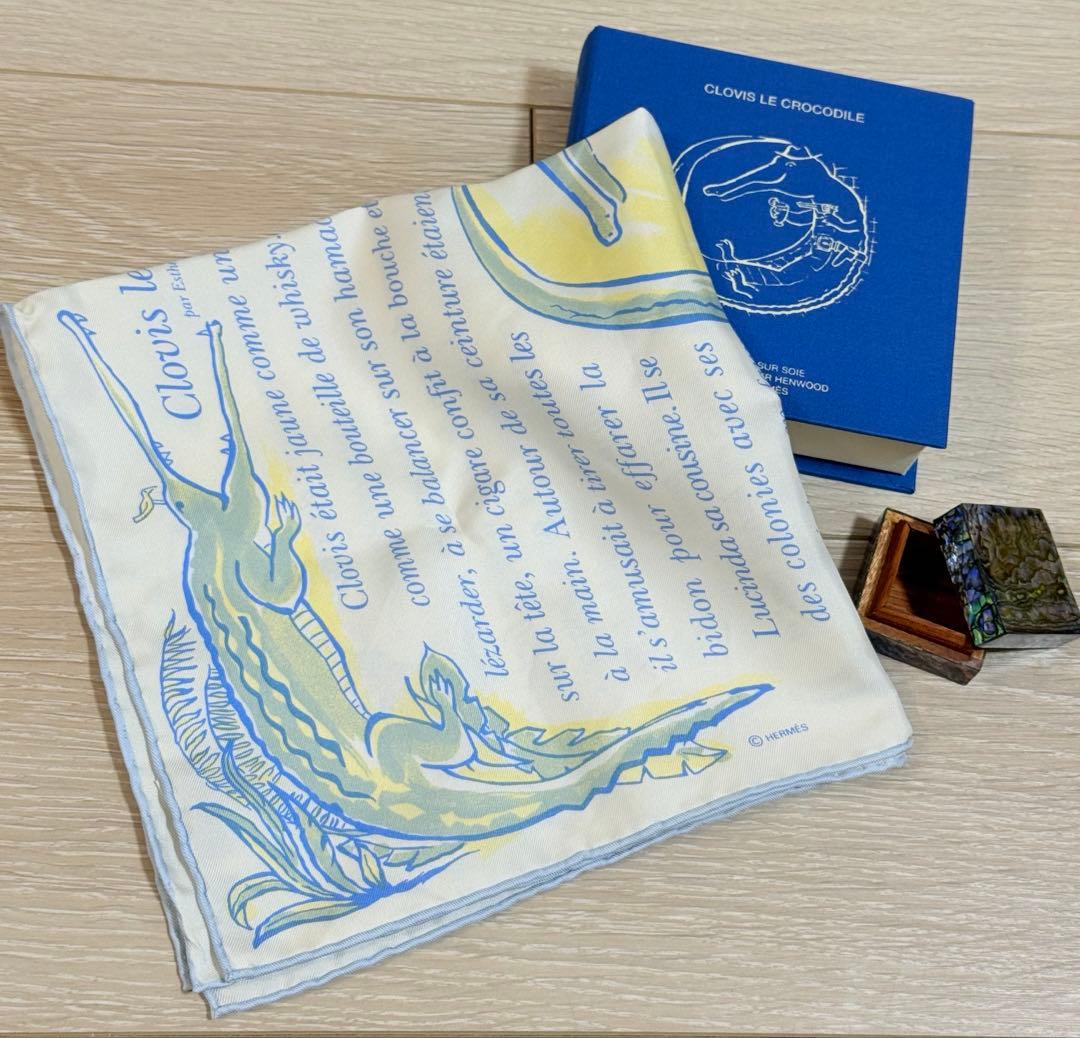 CLOVIS LE CROCODILE
SUR SOIE
HENWOOD
Clovis le
par Esth
Clovis était jaune comme un
comme une bouteille de whisky.
lézarder, à se balancer sur son hamac
sur la tête, un cigare confit à la bouche et
à la main. Autour de sa ceinture étaien
il s'amusait à tirer toutes les
bidon pour effarer la
Lucinda sa cousine. Il se
des colonies avec ses
© HERMÈS